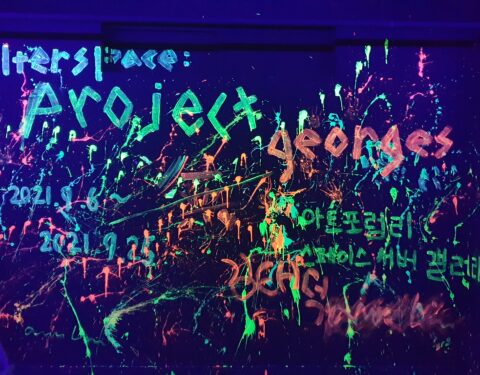 lterspace:
project
georges
2021.9.6~
2021.9.25
아트포럼리
스페이스 서버 갤러리